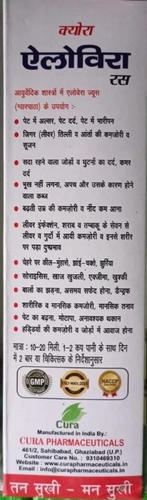 क्योरा
ऐलोविरा
रस
आयुर्वेदिक शास्त्रों में एलोवेरा ज्यूस
(ग्वारपाठा) के उपयोग :-
पेट में अल्सर, पेट दर्द, पेट में भारीपन
जिगर (लीवर) तिल्ली व आंतों की कमज़ोरी व
सूजन
सदा रहने वाला जोड़ों व घुटनों का दर्द, कमर
दर्द
भूख नहीं लगना, अपच और उसके कारण होने
वाला कब्ज
बढ़ती उम्र की कमजोरी व नींद कम आना
लीवर इंफेक्शन, शराब व तम्बाकू के सेवन से
लीवर व गुर्दा में आयी कमजोरी व इनसे शरीर
पर पड़ा दुष्प्रभाव
चेहरे पर कील-मुंहासे, झांई-धब्बे, झुर्रियां
सोराइसिस, खाज खुजली, एक्जीमा, खुश्की
बालों का झड़ना, असमय सफेद होना, डैन्ड्रफ
शारीरिक व मानसिक कमजोरी, मानसिक तनाव
पेट का बढ़ना, मोटापा, अनावश्यक थकान
हड्डियों की कमजोरी व जोड़ों में आवाज होना
मात्रा : 10-20 मिली. 1-2 कप पानी के साथ दिन
में 2 बार या चिकित्सक के निर्देशानुसार
GMP
HACCP
Cura
Manufactured in India By:
CURA PHARMACEUTICALS
461/2, Sahibabad, Ghaziabad (U.P.)
Customer Care No. : 9310469310
Website : www.curapharmaceuticals.in
Email : info@curapharmaceuticals.in
तन सुखी - मन सुखी